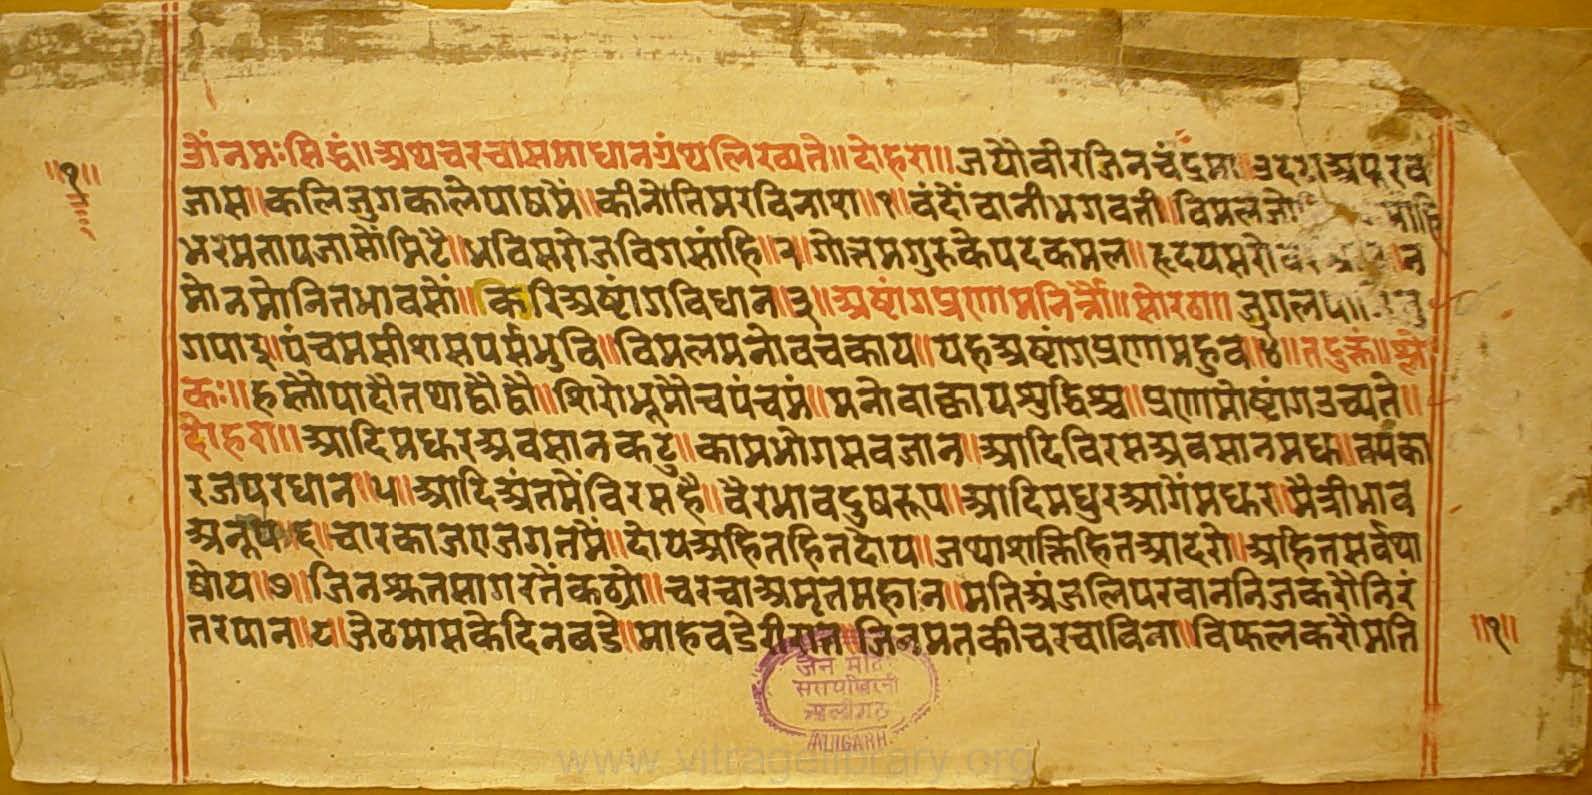 ॥१॥
ओंनमःसिद्धं॥अथचरचासमाधानग्रंथलिख्यते॥दोहरा॥जयौवीरजिनचंद्रमा॥उदराअपूरव
जास॥कलिजुगकालेपाषमैं॥कीनोतिमरविनाश॥१॥वंदौंवानीभगवती॥विमलजो
भरमतापजासौंमिटै॥भविसरोजविगसांहि॥२॥गोत्तमगुरुकेपदकमल॥हृदयसरोवर
मोनमोनितभावसौं॥करिअष्टांगविधान॥३॥अष्टांगप्रणामनिर्नौ॥सोरठा॥जुगलप
गपाइ॥पंचमसीशसपर्सभुवि॥विमलमनोवचकाय॥यहअष्टांगप्रणामहुव॥४॥तदुक्तं॥श्लो
कः॥हस्तौपादौतथाद्वौद्वौ॥शिरोभूमौचपंचमं॥मनोवाक्कायशुद्धिश्च॥प्रणामोष्टांगउच्यते॥
दोहरा॥आदिमधुरअवसानकटु॥कामभोगसवजान॥आदिविरसअवसानमधु॥तपका
रजपरधान॥५॥आदिअंतमेंविरसहै॥वैरभावदुषरूप॥आदिमधुरआगेंमधुर॥मैत्रीभाव
अनूप॥६॥चारकाजएजगतमैं॥दोयअहितहितदोय॥जथाशक्तिहितआदरो॥अहितसर्वथा
षोय॥७॥जिनश्रुतसागरतैंकठ्यो॥चरचाअमृतमहान॥मतिअंजलिपरवाननिजकरौनिरं
तरपान॥८॥जेठमासकेदिनबडे॥माहवडेरीरात॥जिनमतकीचरचाविना॥विफलकरौमति
॥१॥
जैन मंदि
सरायखिरनी
अलीगढ़
ALIGARH
www.vitragelibrary.org